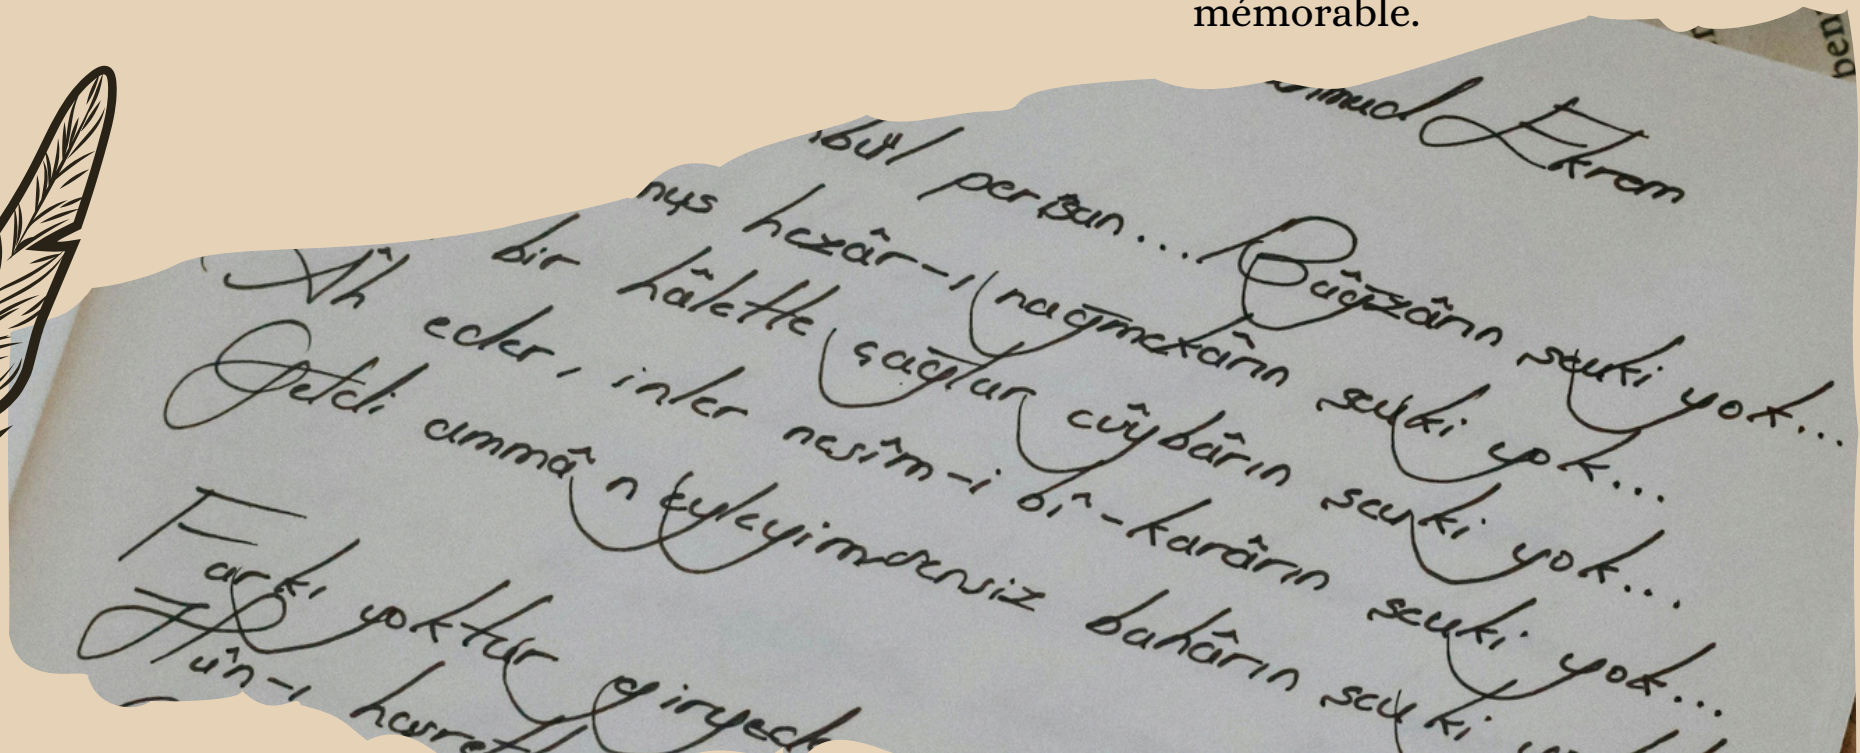 mémorable.
hmud Ekrem
bül perişan... Bâğzârın şevki yok...
hezâr-ı nağmekârın şevki yok...
bir hâletle çağlar cûybârın şevki yok...
Âh eder, inler nesîm-i bî-karârın şevki yok...
Geldi ammâ n eyleyim sensiz bahârın şevki
Farkı yoktur giryed
Hûn-ı hasretl